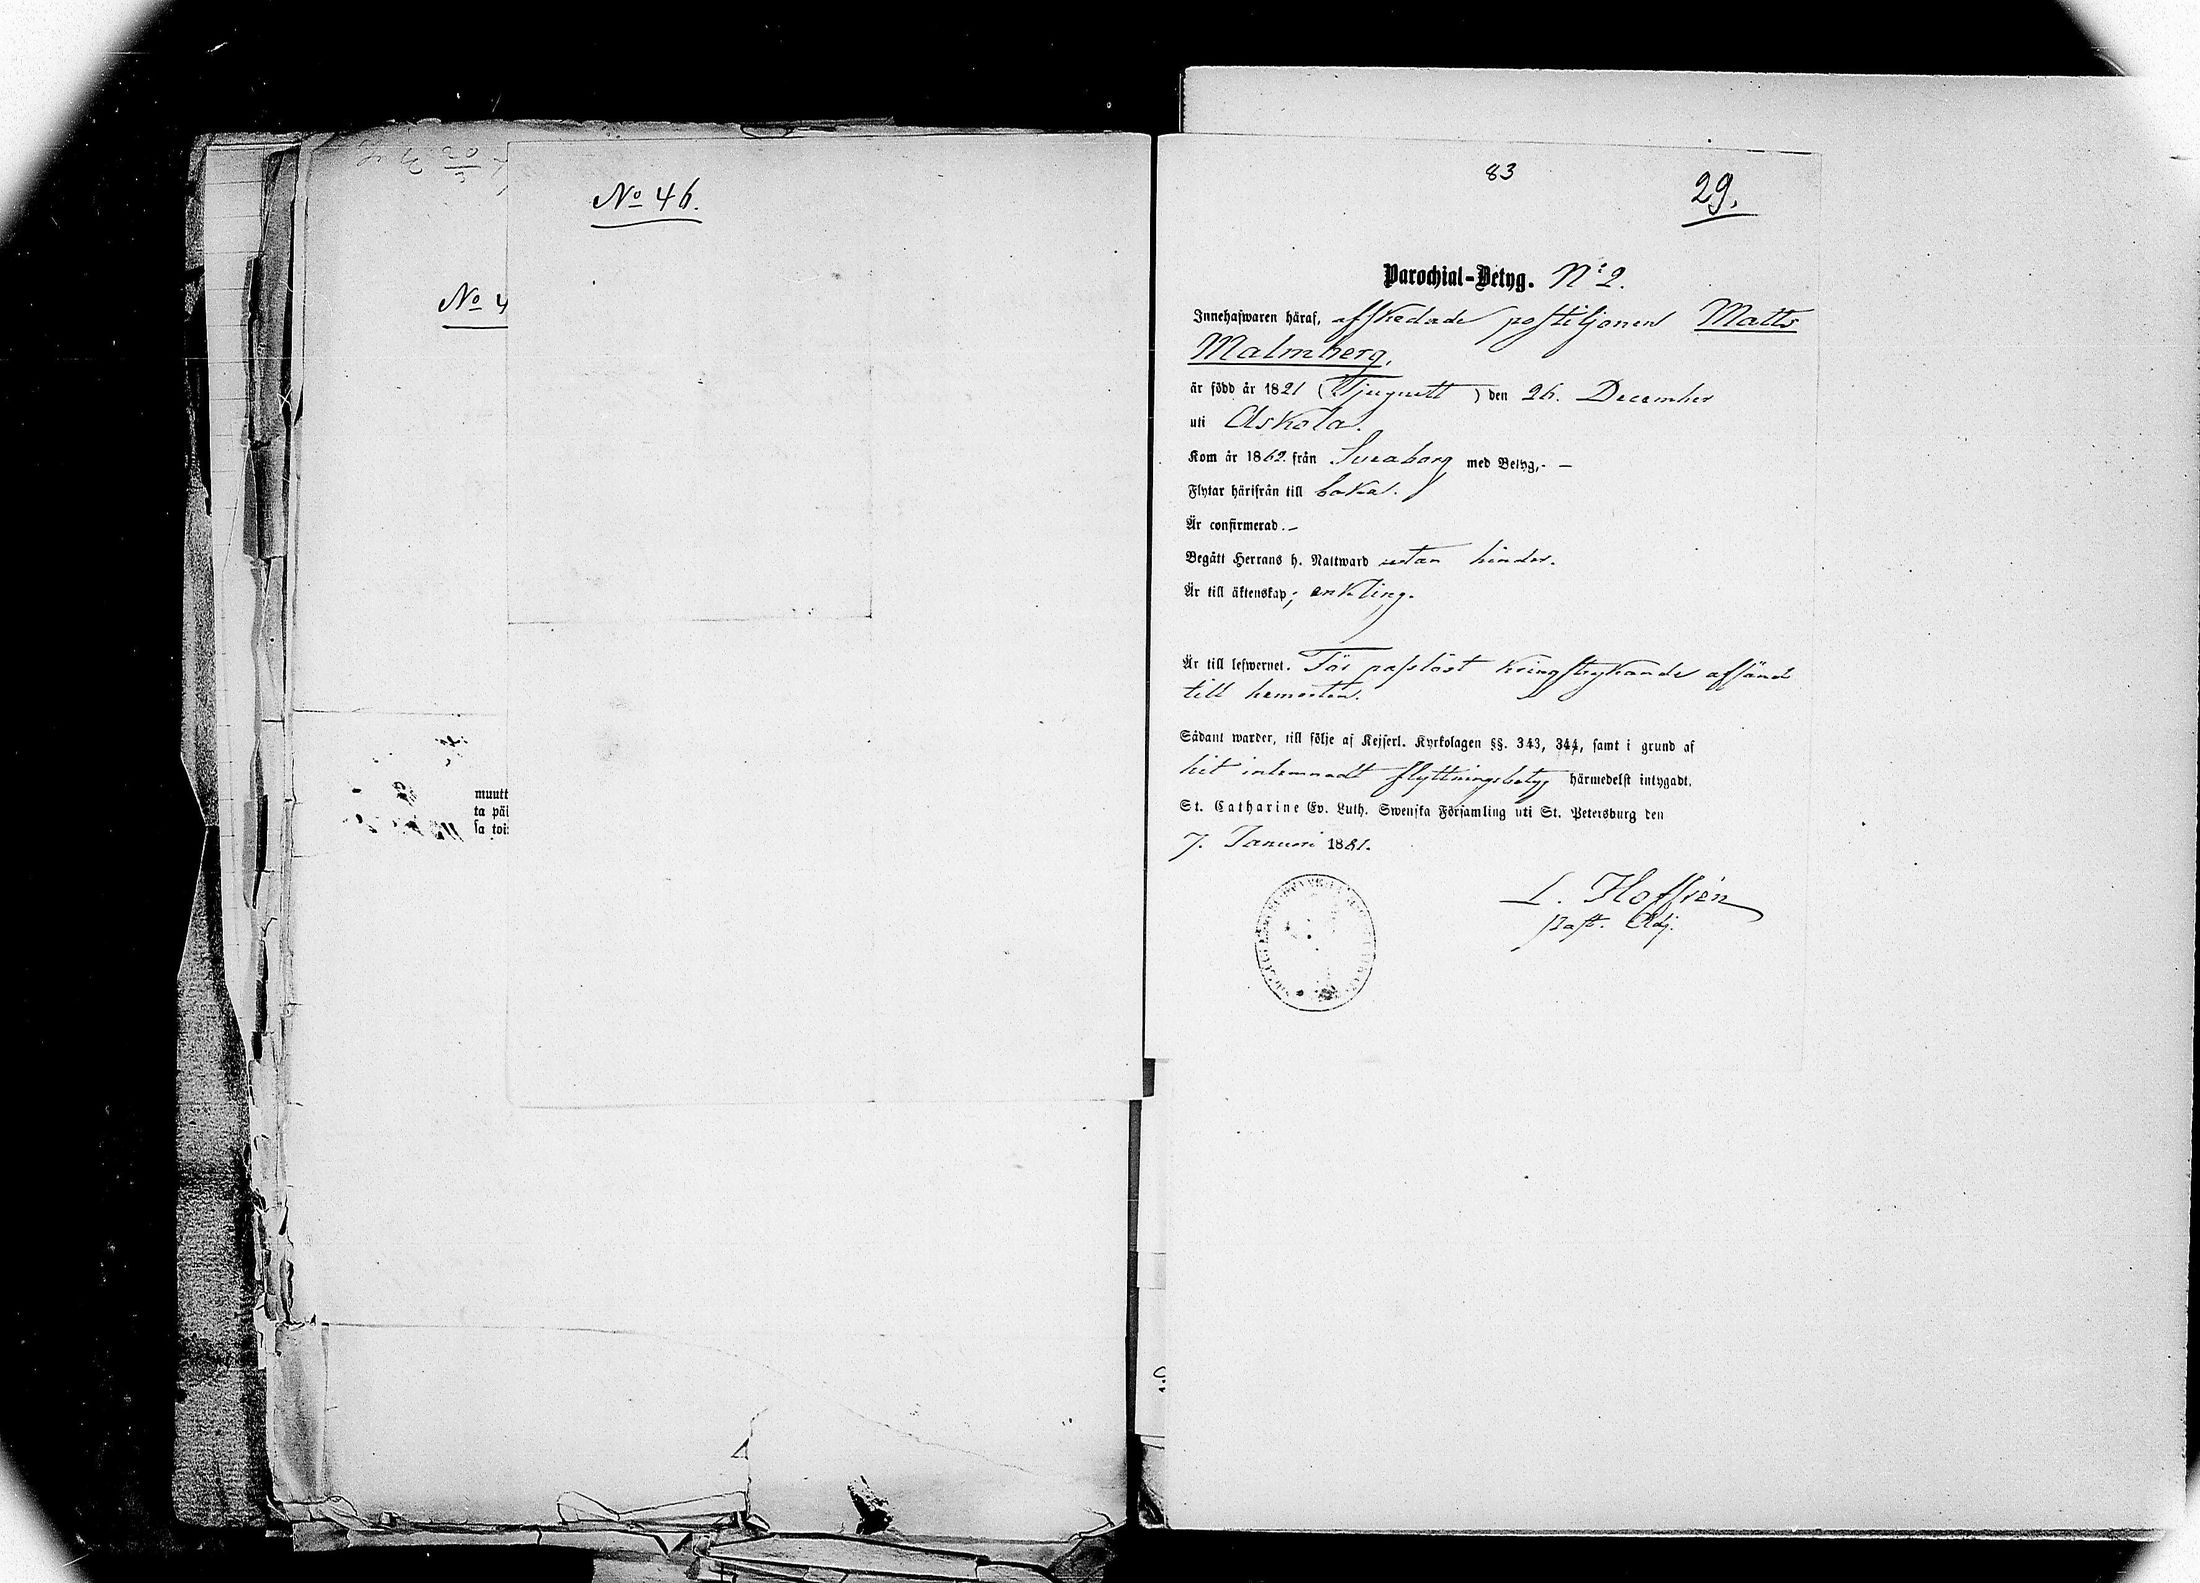 No 46.
No 4
muutt
ta päi
sa toi
83
29.
Parochial-Betyg. No 2.
Innehafwaren häraf, afskedade postiljonen Matts
Malmberg,
är född år 1821 (Tjuguett) den 26. December
uti Askola.
Kom år 1862 från Sveaborg med Betyg, -
Flytar härifrån till baka.
Är confirmerad. -
Begått Herrans h. Nattward utan hinder.
Är till äktenskap; enkling.
Är till lefwernet. För passlöst kringstrykande afsänd
till hemorten.
Sådant warder, till följe af Kejserl. Kyrkolagen §§. 343, 344, samt i grund af
hit inlemnadt flyttningsbetyg härmedelst intygadt.
St. Catharine Ev. Luth. Swenska Församling uti St. Petersburg den
7. Januari 1881.
L. Hoffrén
Past. Adj.